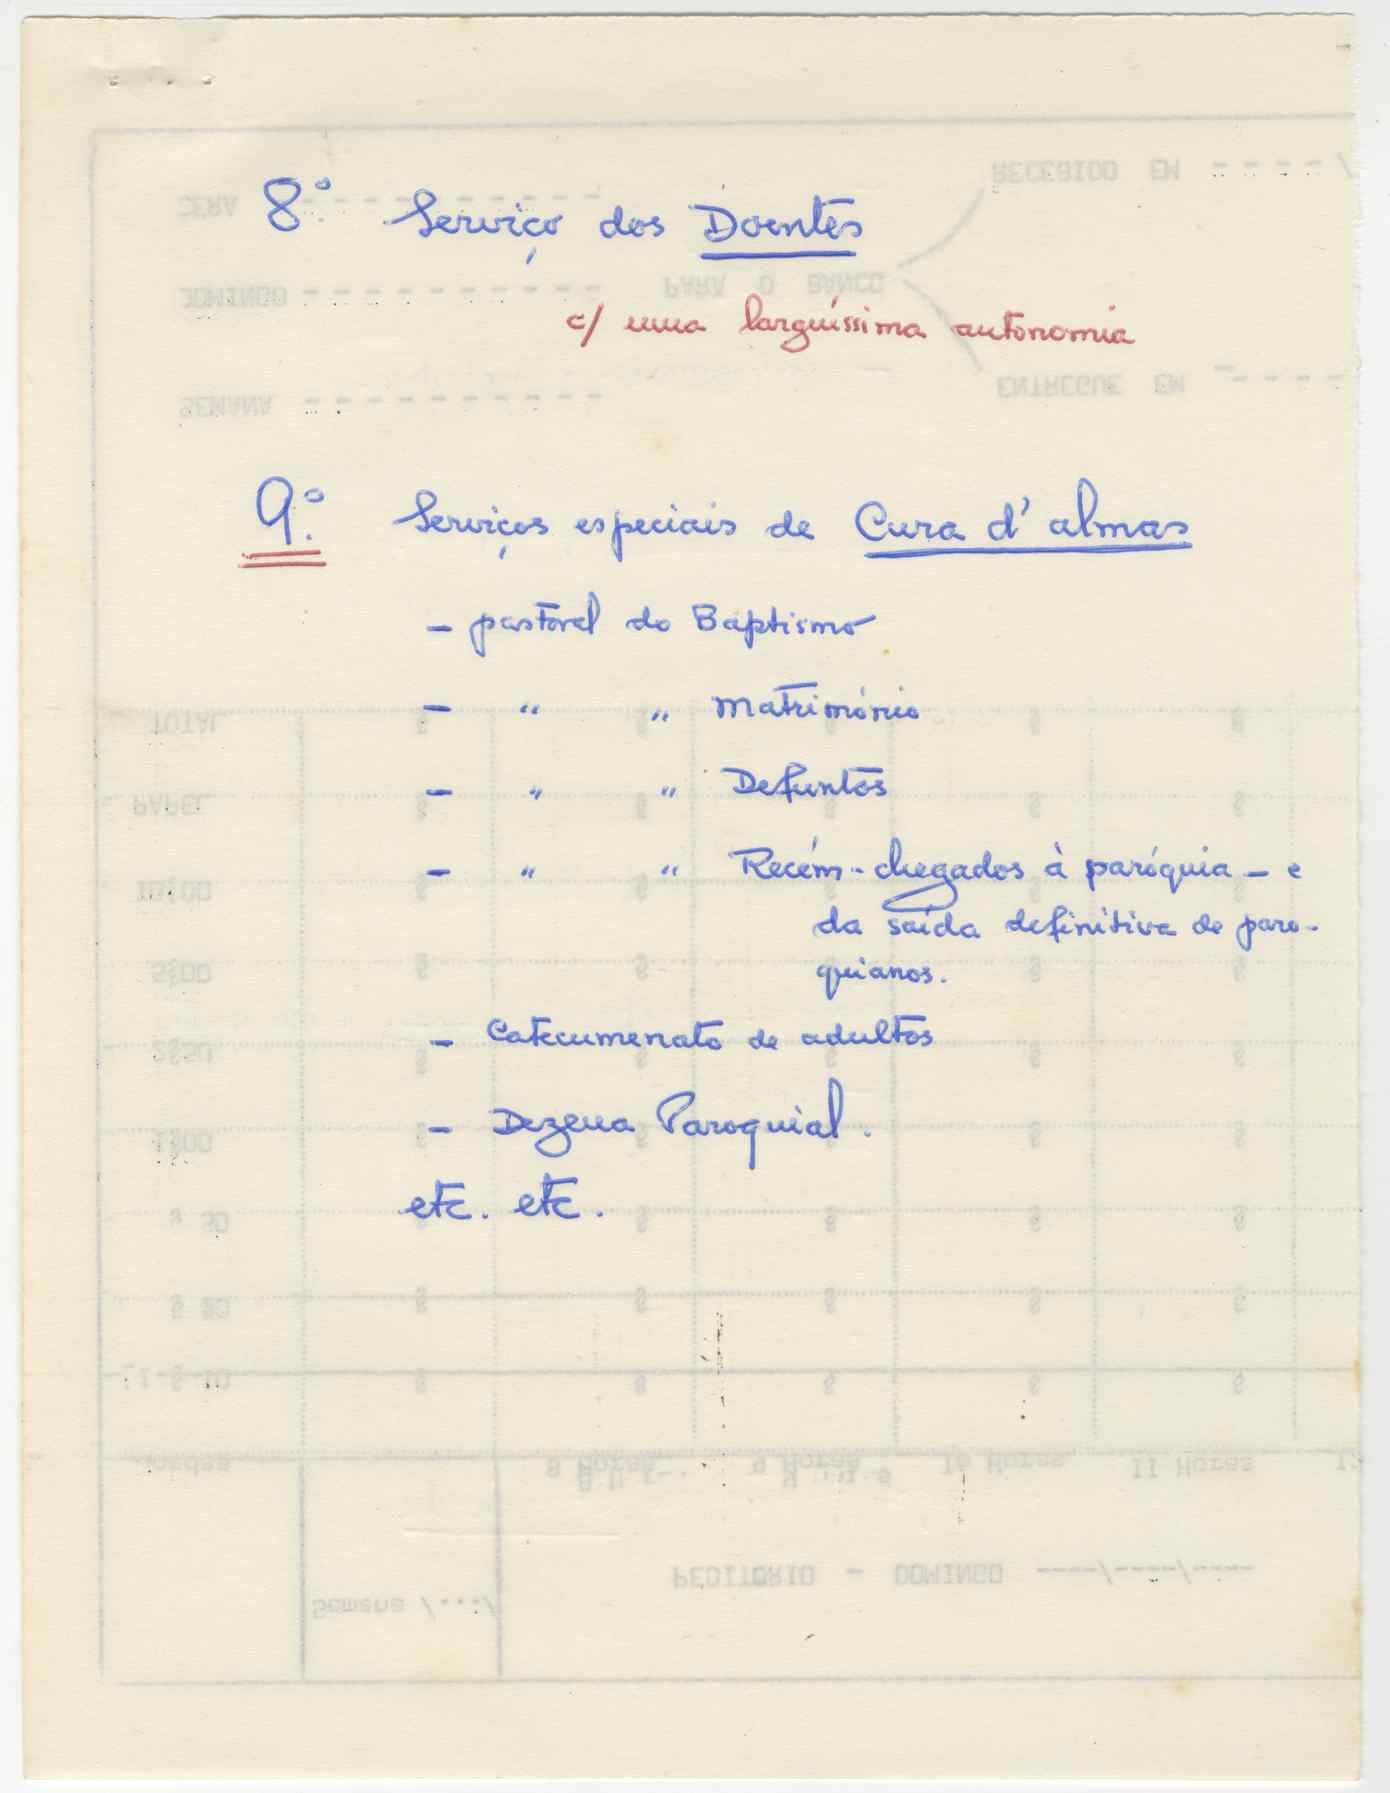 8.º Serviço dos Doentes
c/ uma larguíssima autonomia
9.º Serviços especiais de Cura d'almas
- pastoral do Baptismo
- " " Matrimónio
- " " Defuntos
- " " Recém-chegados à paróquia - e
da saída definitiva de paro-
quianos.
- Catecumenato de adultos
- Dezena Paroquial.
etc. etc.